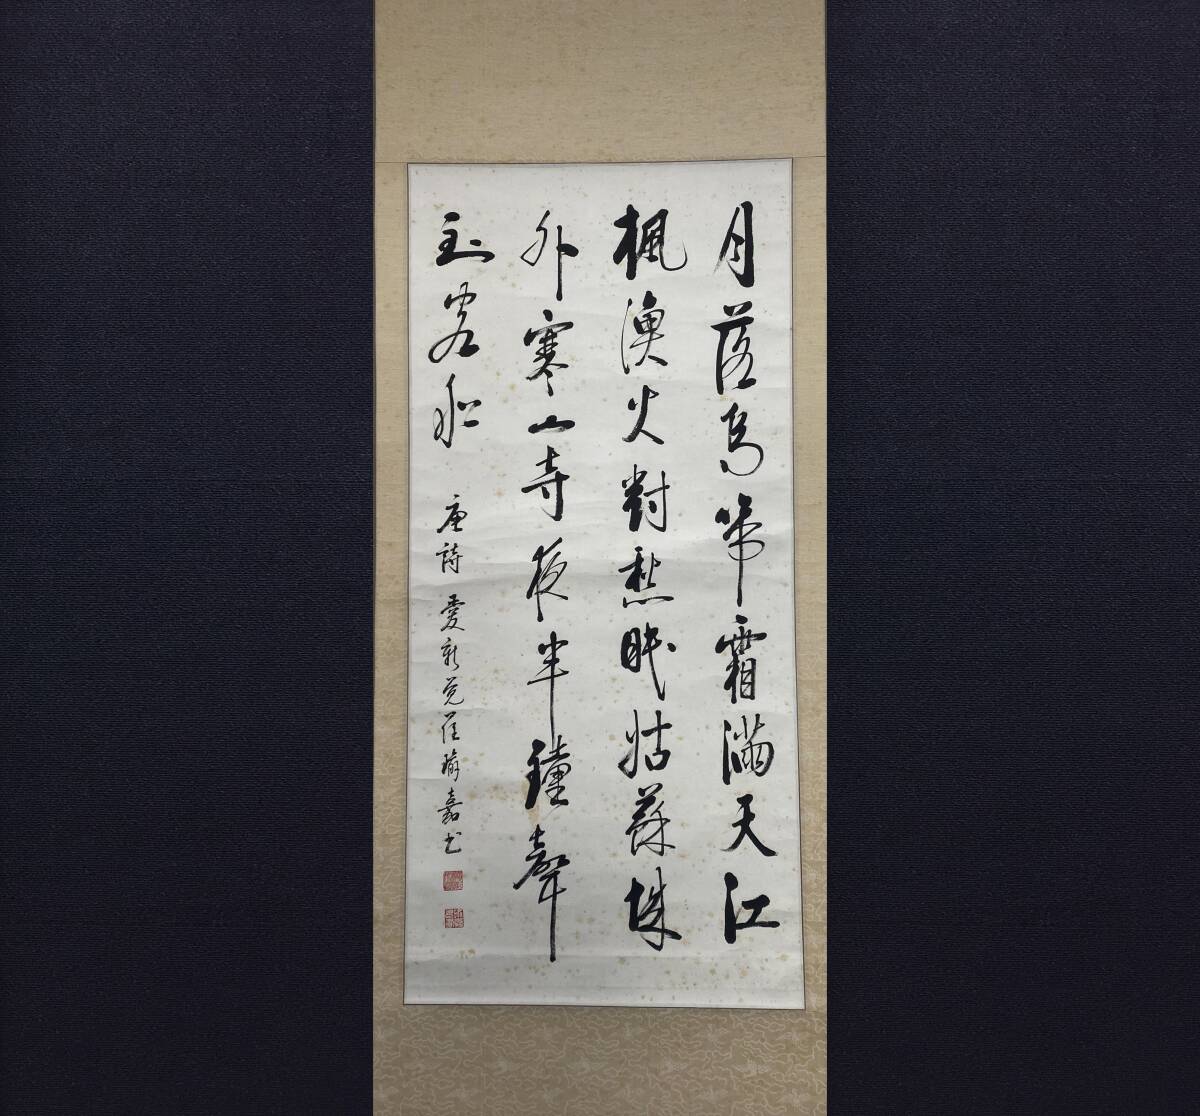 月落烏啼霜滿天江
楓漁火對愁眠姑蘇城
外寒山寺夜半鐘聲
到客船 唐詩 愛新觉羅瑜嘉书